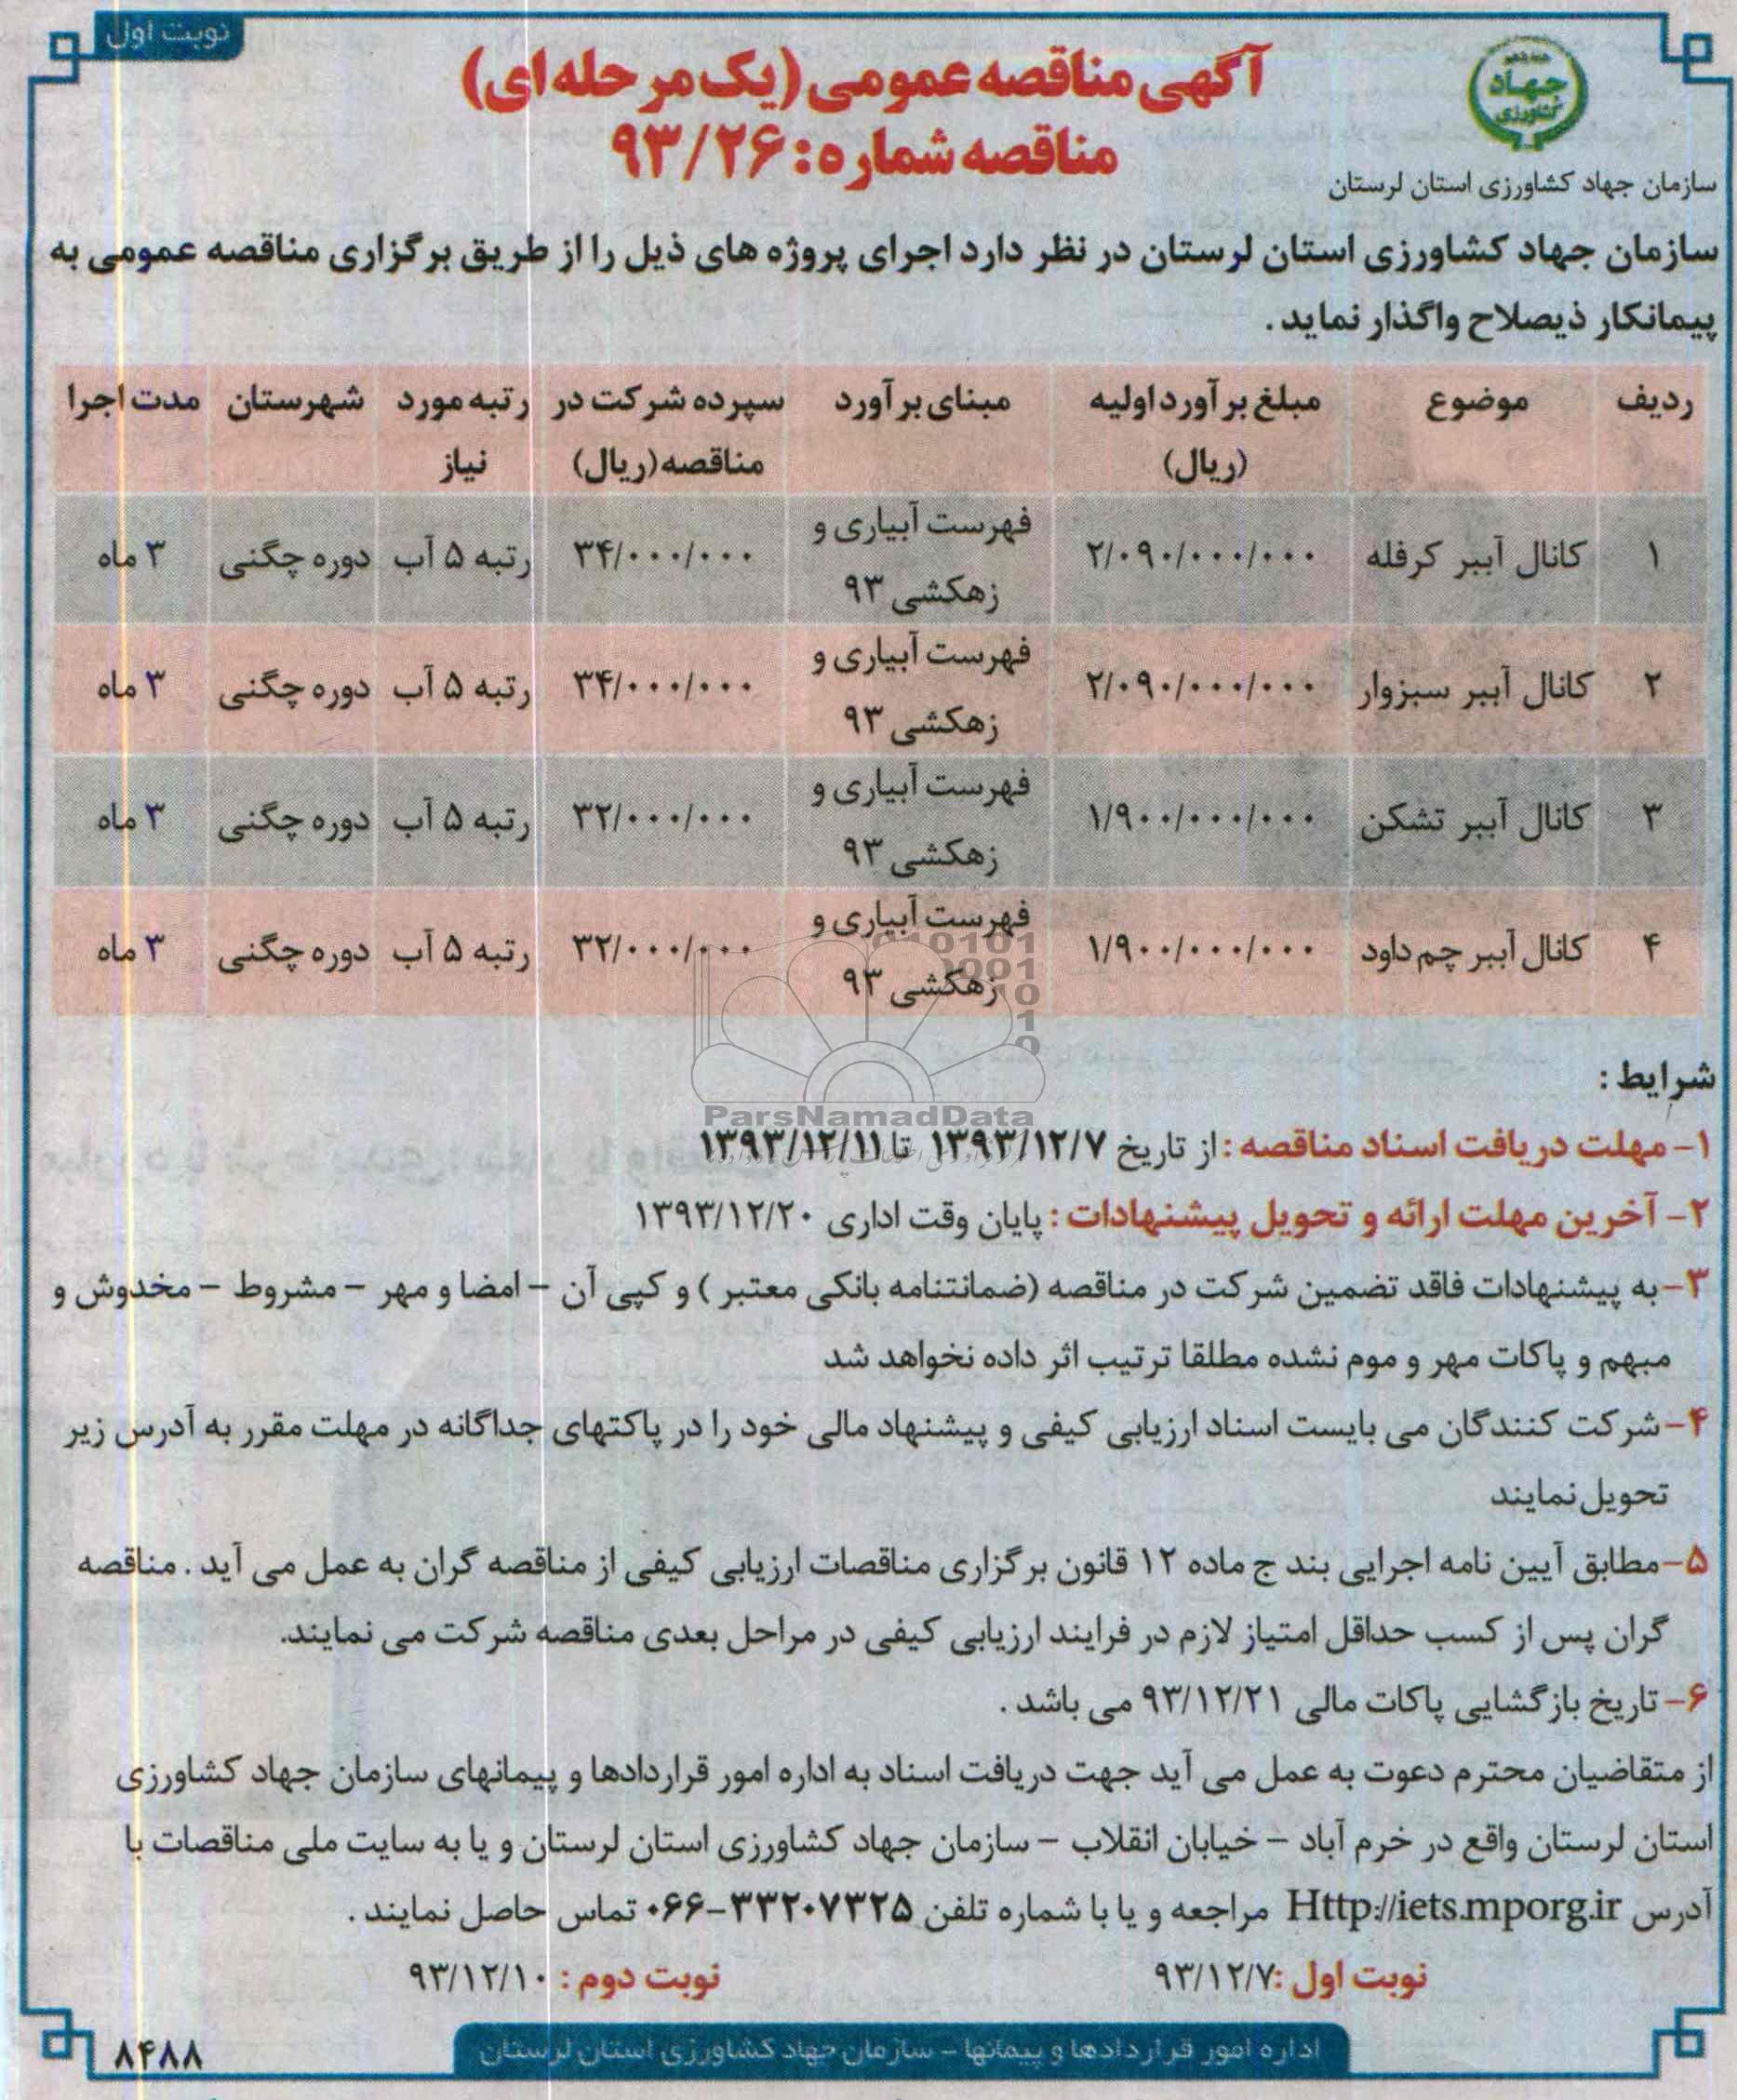 نوبت اول
جهاد
کشاورزی
سازمان جهاد کشاورزی استان لرستان
آگهی مناقصه عمومی (یک مرحله ای)
مناقصه شماره: ۹۳/۲۶
سازمان جهاد کشاورزی استان لرستان در نظر دارد اجرای پروژه های ذیل را از طریق برگزاری مناقصه عمومی به
پیمانکار ذیصلاح واگذار نماید.
ردیف موضوع مبلغ برآورد اولیه (ریال) مبنای برآورد سپرده شرکت در مناقصه(ریال) رتبه مورد نیاز شهرستان مدت اجرا
۱ کانال آببر کرفله ۲/۰۹۰/۰۰۰/۰۰۰ فهرست آبیاری و زهکشی ۹۳ ۳۴/۰۰۰/۰۰۰ رتبه ۵ آب دوره چگنی ۳ ماه
۲ کانال آببر سبزوار ۲/۰۹۰/۰۰۰/۰۰۰ فهرست آبیاری و زهکشی ۹۳ ۳۴/۰۰۰/۰۰۰ رتبه ۵ آب دوره چگنی ۳ ماه
۳ کانال آببر تشکن ۱/۹۰۰/۰۰۰/۰۰۰ فهرست آبیاری و زهکشی ۹۳ ۳۲/۰۰۰/۰۰۰ رتبه ۵ آب دوره چگنی ۳ ماه
۴ کانال آببر چم داود ۱/۹۰۰/۰۰۰/۰۰۰ فهرست آبیاری و زهکشی ۹۳ ۳۲/۰۰۰/۰۰۰ رتبه ۵ آب دوره چگنی ۳ ماه
ParsNamadData
شرایط :
۱- مهلت دریافت اسناد مناقصه : از تاریخ ۱۳۹۳/۱۲/۷ تا ۱۳۹۳/۱۲/۱۱
۲- آخرین مهلت ارائه و تحویل پیشنهادات : پایان وقت اداری ۱۳۹۳/۱۲/۲۰
۳- به پیشنهادات فاقد تضمین شرکت در مناقصه (ضمانتنامه بانکی معتبر ) و کپی آن – امضا و مهر – مشروط – مخدوش و
مبهم و پاکات مهر و موم نشده مطلقا ترتیب اثر داده نخواهد شد
۴- شرکت کنندگان می بایست اسناد ارزیابی کیفی و پیشنهاد مالی خود را در پاکتهای جداگانه در مهلت مقرر به آدرس زیر
تحویل نمایند
۵- مطابق آیین نامه اجرایی بند ج ماده ۱۲ قانون برگزاری مناقصات ارزیابی کیفی از مناقصه گران به عمل می آید . مناقصه
گران پس از کسب حداقل امتیاز لازم در فرایند ارزیابی کیفی در مراحل بعدی مناقصه شرکت می نمایند.
۶- تاریخ بازگشایی پاکات مالی ۹۳/۱۲/۲۱ می باشد .
از متقاضیان محترم دعوت به عمل می آید جهت دریافت اسناد به اداره امور قراردادها و پیمانهای سازمان جهاد کشاورزی
استان لرستان واقع در خرم آباد – خیابان انقلاب – سازمان جهاد کشاورزی استان لرستان و یا به سایت ملی مناقصات با
آدرس Http://iets.mporg.ir مراجعه و یا با شماره تلفن ۳۳۲۰۷۳۲۵-۰۶۶ تماس حاصل نمایند .
نوبت اول :۹۳/۱۲/۷ نوبت دوم : ۹۳/۱۲/۱۰
اداره امور قراردادها و پیمانها - سازمان جهاد کشاورزی استان لرستان
۸۴۸۸